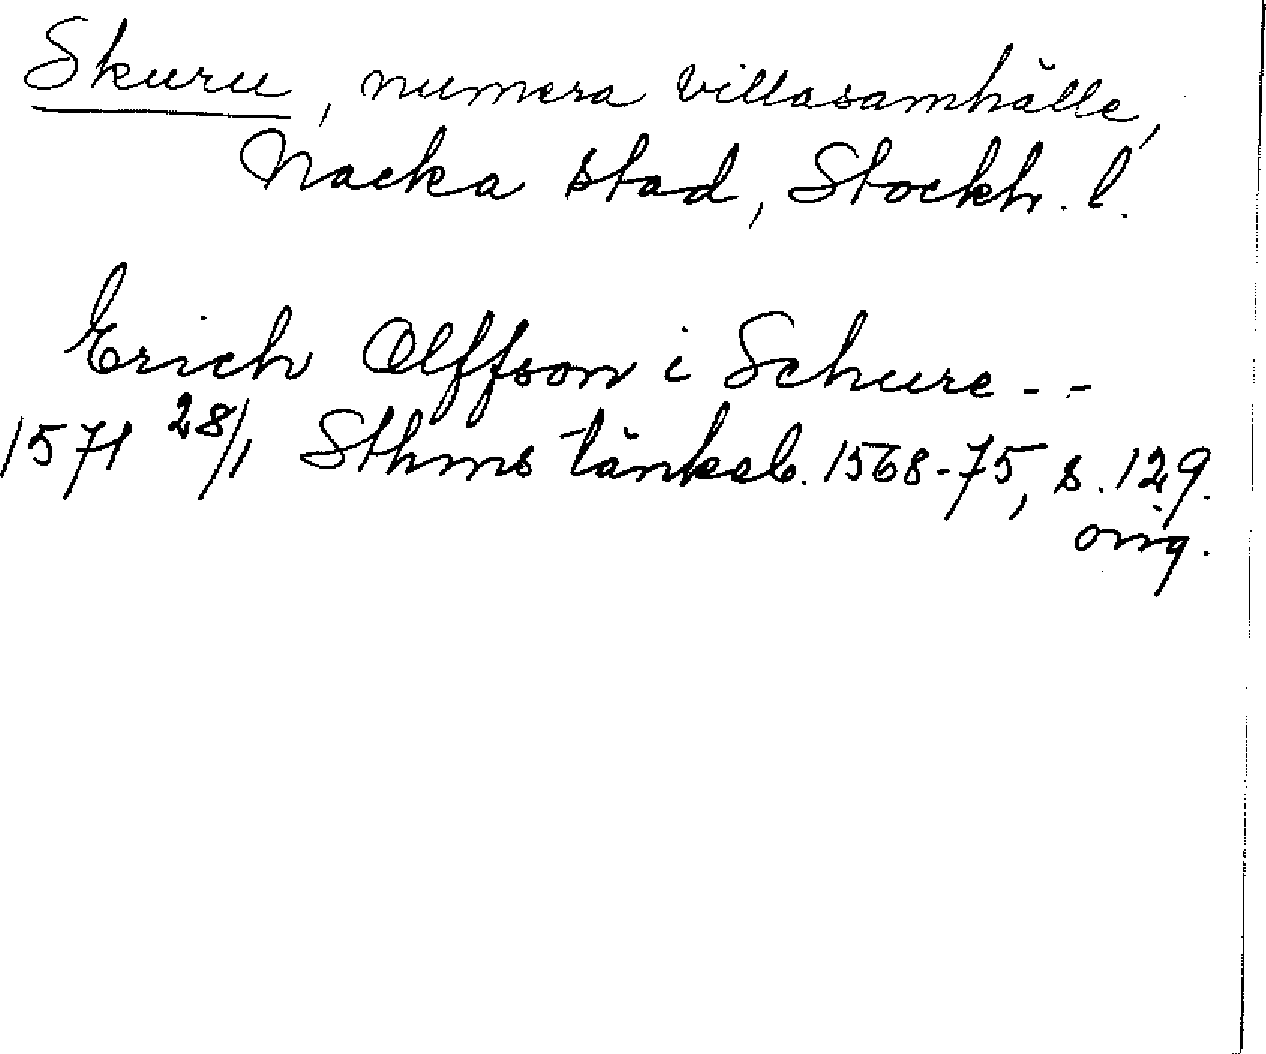 Skuru, numera villasamhälle,
Nacka stad, Stockh. l.
Erich Olffson i Schure - -
1571 28/1 Sthms tänkeb. 1568-75, s. 129.
orig.